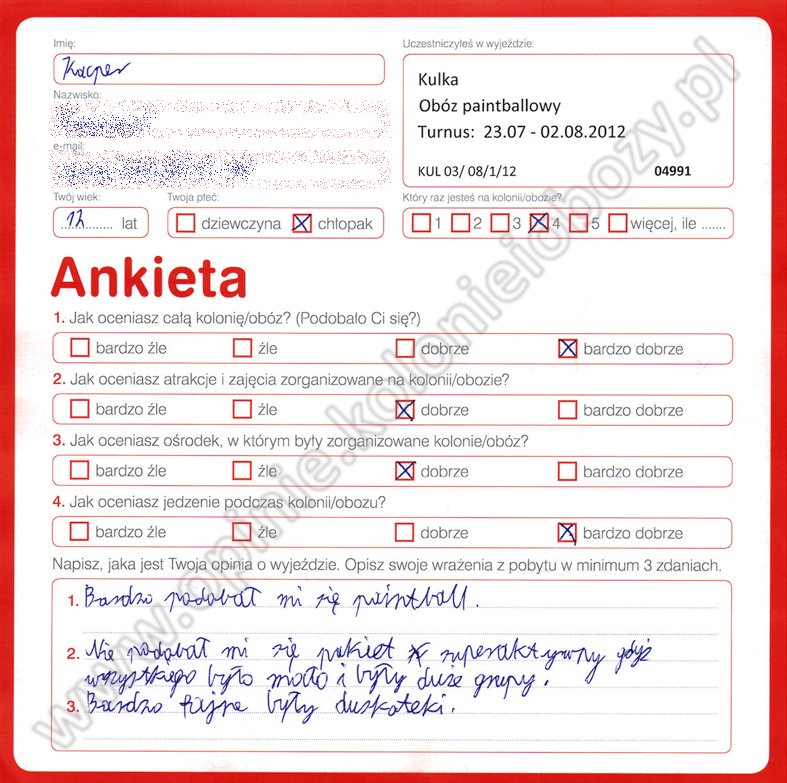 Imię:
Uczestniczyłeś w wyjeździe:
Kacper
Nazwisko:
Kulka
Obóz paintballowy
Turnus: 23.07 - 02.08.2012
e-mail:
KUL 03/ 08/1/12 04991
Twój wiek:
Twoja płeć:
Który raz jesteś na kolonii/obozie?
12 lat
dziewczyna chłopak
1 2 3 4 5 więcej, ile .......
Ankieta
1. Jak oceniasz całą kolonię/obóz? (Podobało Ci się?)
bardzo źle źle dobrze bardzo dobrze
2. Jak oceniasz atrakcje i zajęcia zorganizowane na kolonii/obozie?
bardzo źle źle dobrze bardzo dobrze
3. Jak oceniasz ośrodek, w którym były zorganizowane kolonie/obóz?
bardzo źle źle dobrze bardzo dobrze
4. Jak oceniasz jedzenie podczas kolonii/obozu?
bardzo źle źle dobrze bardzo dobrze
Napisz, jaka jest Twoja opinia o wyjeździe. Opisz swoje wrażenia z pobytu w minimum 3 zdaniach.
1. Bardzo podobał mi się paintball.
2. Nie podobał mi się pakiet superaktywny gdyż
wszystkiego było mało i były duże grupy.
3. Bardzo fajne były duskoteki.
www.opinie.kolonieiobozy.pl